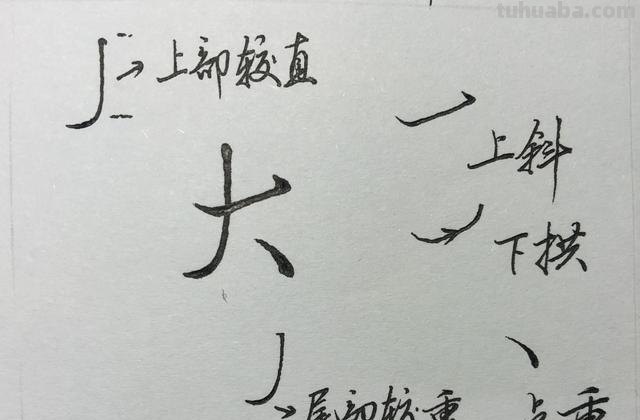 tuhuaba.com
上部较直
上斜
大
下拱
尾部较重
点重